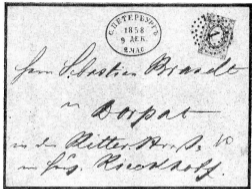 С.ПЕТЕРБУРГЪ
1858
9 ДЕК.
2 ЧАС
Herrn Sebastian Brandt
in
Dorpat
in der Ritter Straße
im